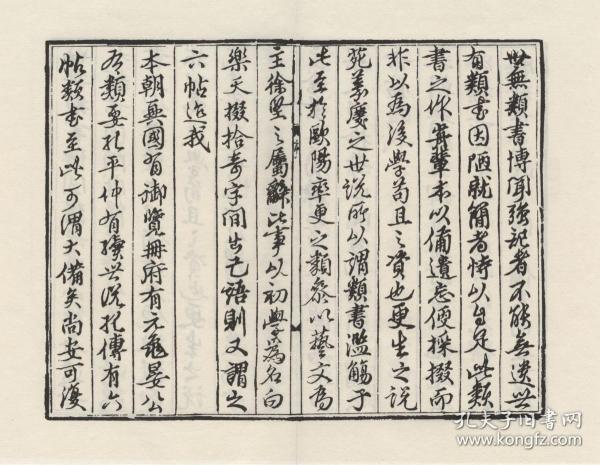 世無類書博聞強記者不能無遺世
有類書因陋就簡者恃以自足此類
書之作前輩本以備遺忘便採掇而
非以為後學苟且之資也更生之說
苑義慶之世說所以謂類書濫觴乎
此至於歐陽率更之類叅以藝文為
主徐堅之屬辭比事以初學為名白
樂天掇拾奇字間出己語則又謂之
六帖逮我
本朝輿國有御覽冊府有元龜晏公
有類要孔平仲有續世說孔傳有六
帖類書至此可謂大備矣尚安可復
孔夫子旧书网
www.kongfz.com